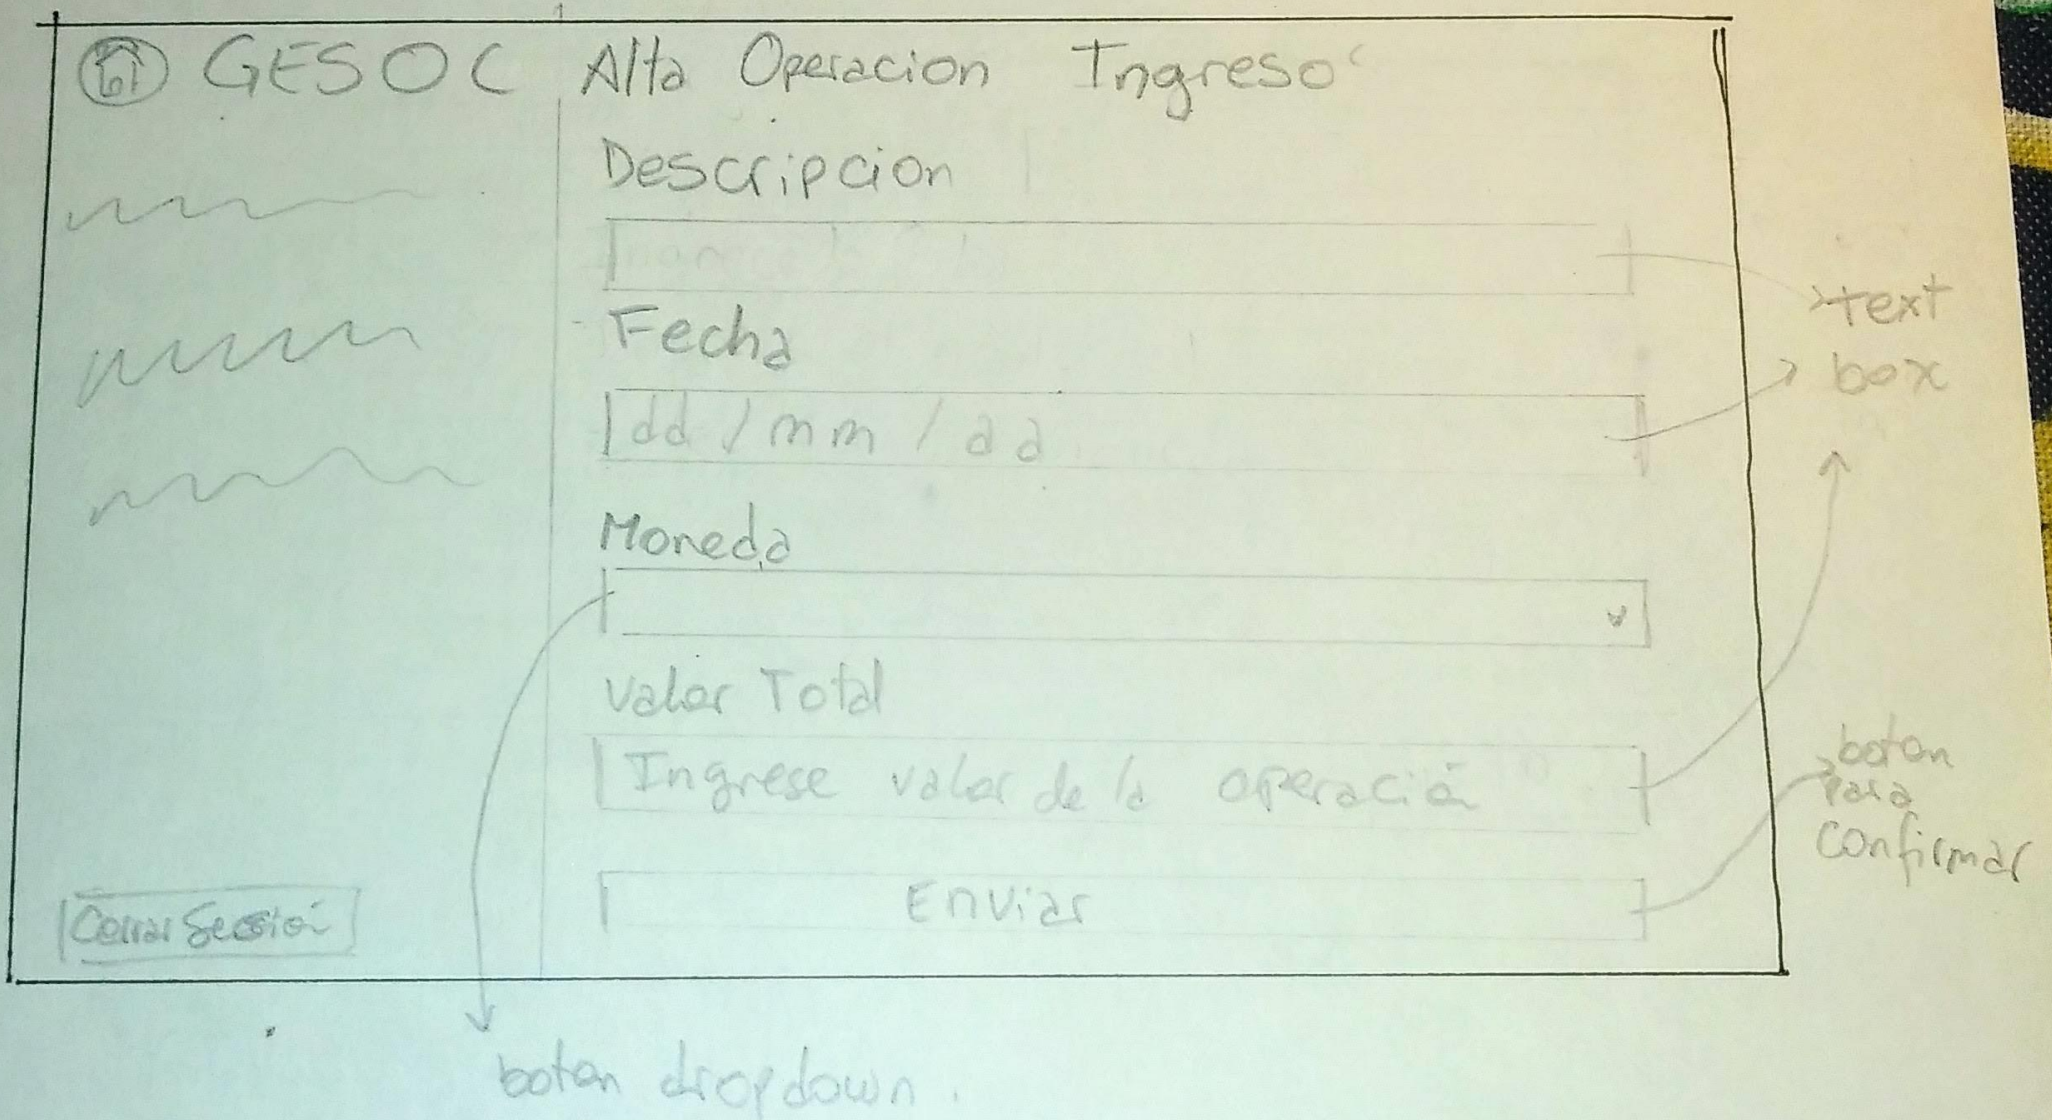 GESOC
Alta Operacion Ingreso
Descripcion
Fecha
dd / mm / aa
Moneda
Valor Total
Ingrese valor de la operación
Enviar
Cerrar Sesión
text
box
boton
para
confirmar
boton dropdown.